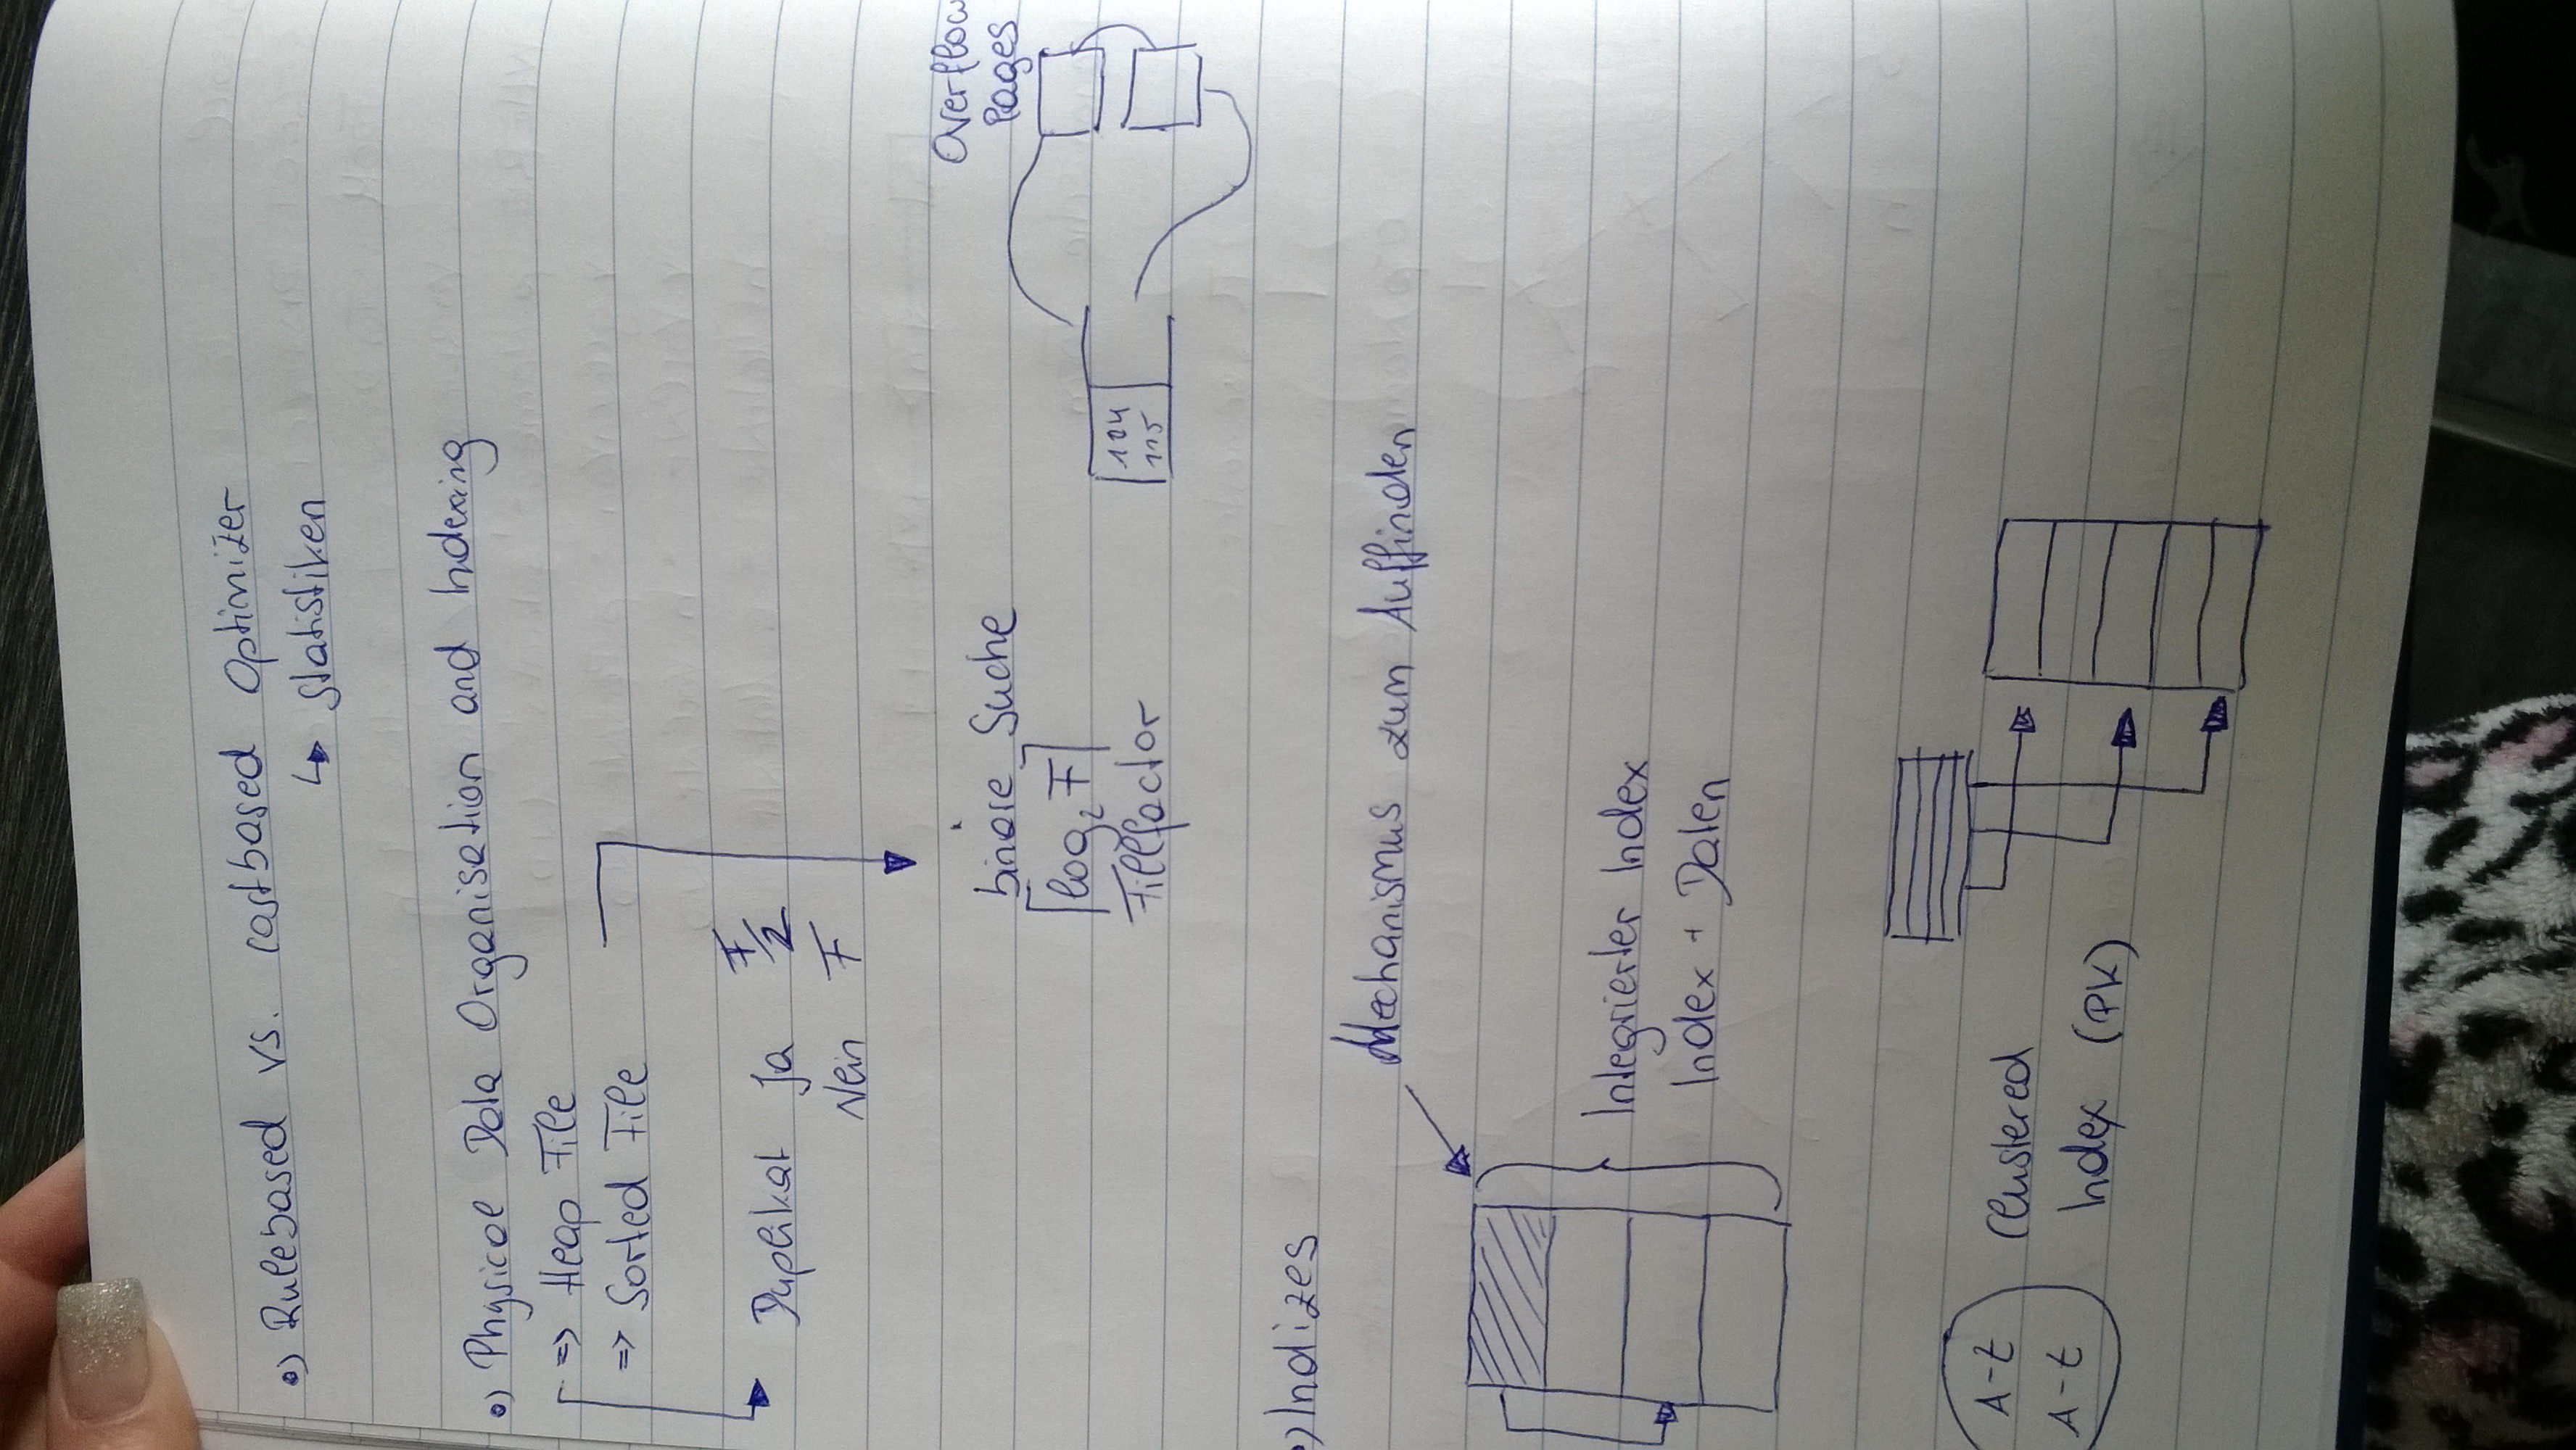 •) Rulebased vs. costbased Optimizer
↳ Statistiken
•) Physical Data Organisation and Indexing
=> Heap File
=> Sorted File
Duplikat Ja F/2
Nein F
binäre Suche
⌈log₂ F⌉
Fillfactor
Overflow
Pages
104
115
•) Indizes
Mechanismus zum Auffinden
Integrierter Index
Index + Daten
A-Z
A-Z
Clustered
Index (PK)